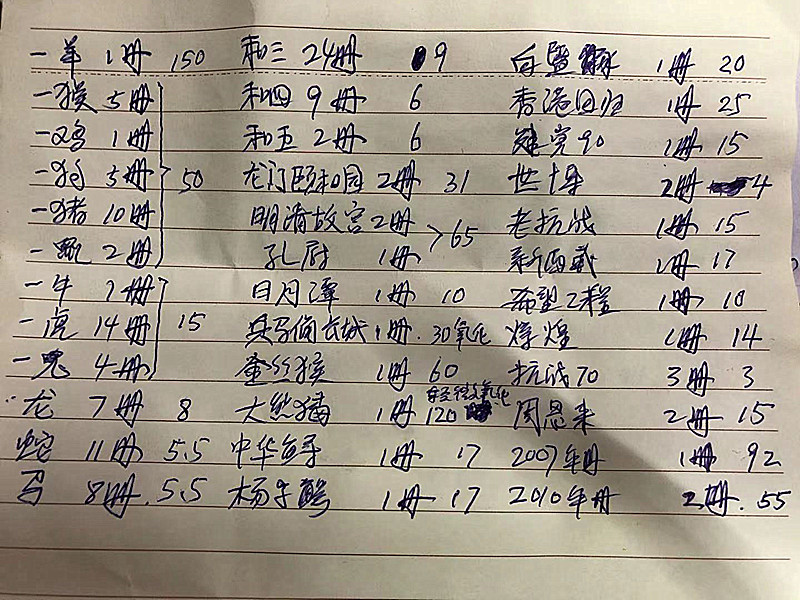 一羊 1册 150 和三 24册 9 白鱀豚 1册 20
一猴 5册 和四 9册 6 香港回归 1册 25
一鸡 1册 和五 2册 6 建党90 1册 15
一狗 5册 50 龙门颐和园 2册 31 世十年 2册 4
一猪 10册 明清故宫 2册 65 老抗战 1册 15
一甄 2册 孔尉 1册 新西藏 1册 17
一牛 7册 日月潭 1册 10 希望工程 1册 10
一虎 14册 15 兵马俑长城 1册 30氧化 辉煌 1册 14
一兔 4册 金丝猴 1册 60 抗战70 3册 3
轻微氧化
龙 7册 8 大熊猫 1册 120 周恩来 2册 15
蛇 11册 5.5 中华鲟 1册 17 2009年册 1册 92
马 8册 5.5 扬子鳄 1册 17 2010年册 2册 55